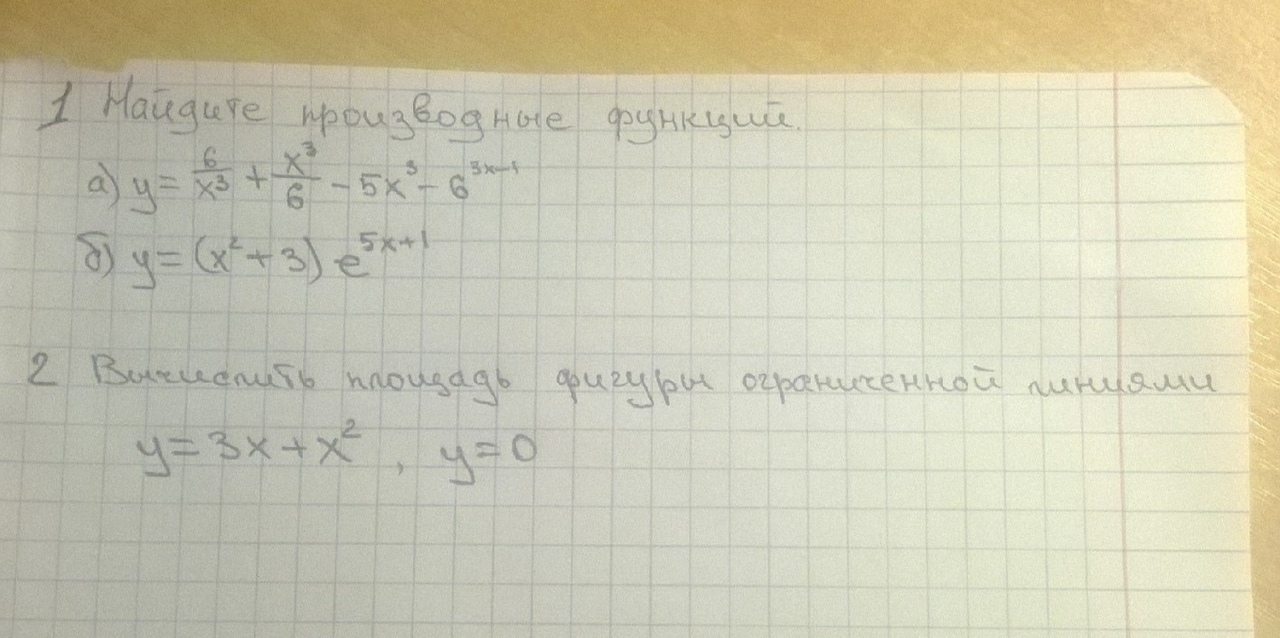 1 Найдите производные функций.
а) y = 6/x³ + x³/6 - 5x³ - 6^(3x-1)
б) y = (x² + 3) e^(5x+1)
2 Вычислить площадь фигуры ограниченной линиями
y = 3x + x² , y = 0